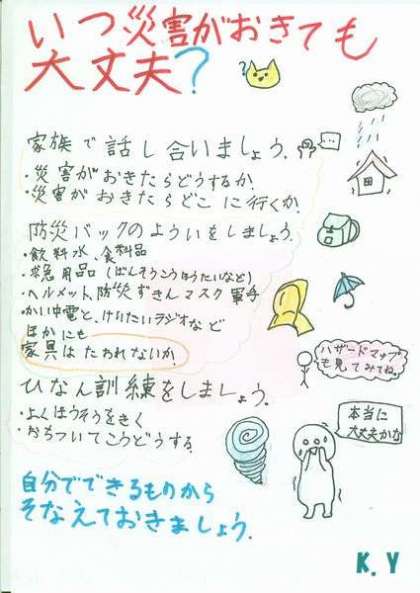 いつ災害がおきても
大丈夫?
?
家族で話し合いましょう.
...
・災害がおきたらどうするか.
・災害がおきたらどこに行くか.
防災バックのよういをしましょう.
・飲料水、食料品
・救急用品(ばんそうこうほうたいなど)
・ヘルメット、防災ずきんマスク軍手
かい中電と、けいたいラジオなど
ほかにも
家具はたおれないか.
ハザードマップ
も見てみてね.
ひなん訓練をしましょう.
・よくほうそうをきく
・おちついてこうどうする.
本当に
大丈夫かな
自分でできるものから
そなえておきましょう.
K.Y